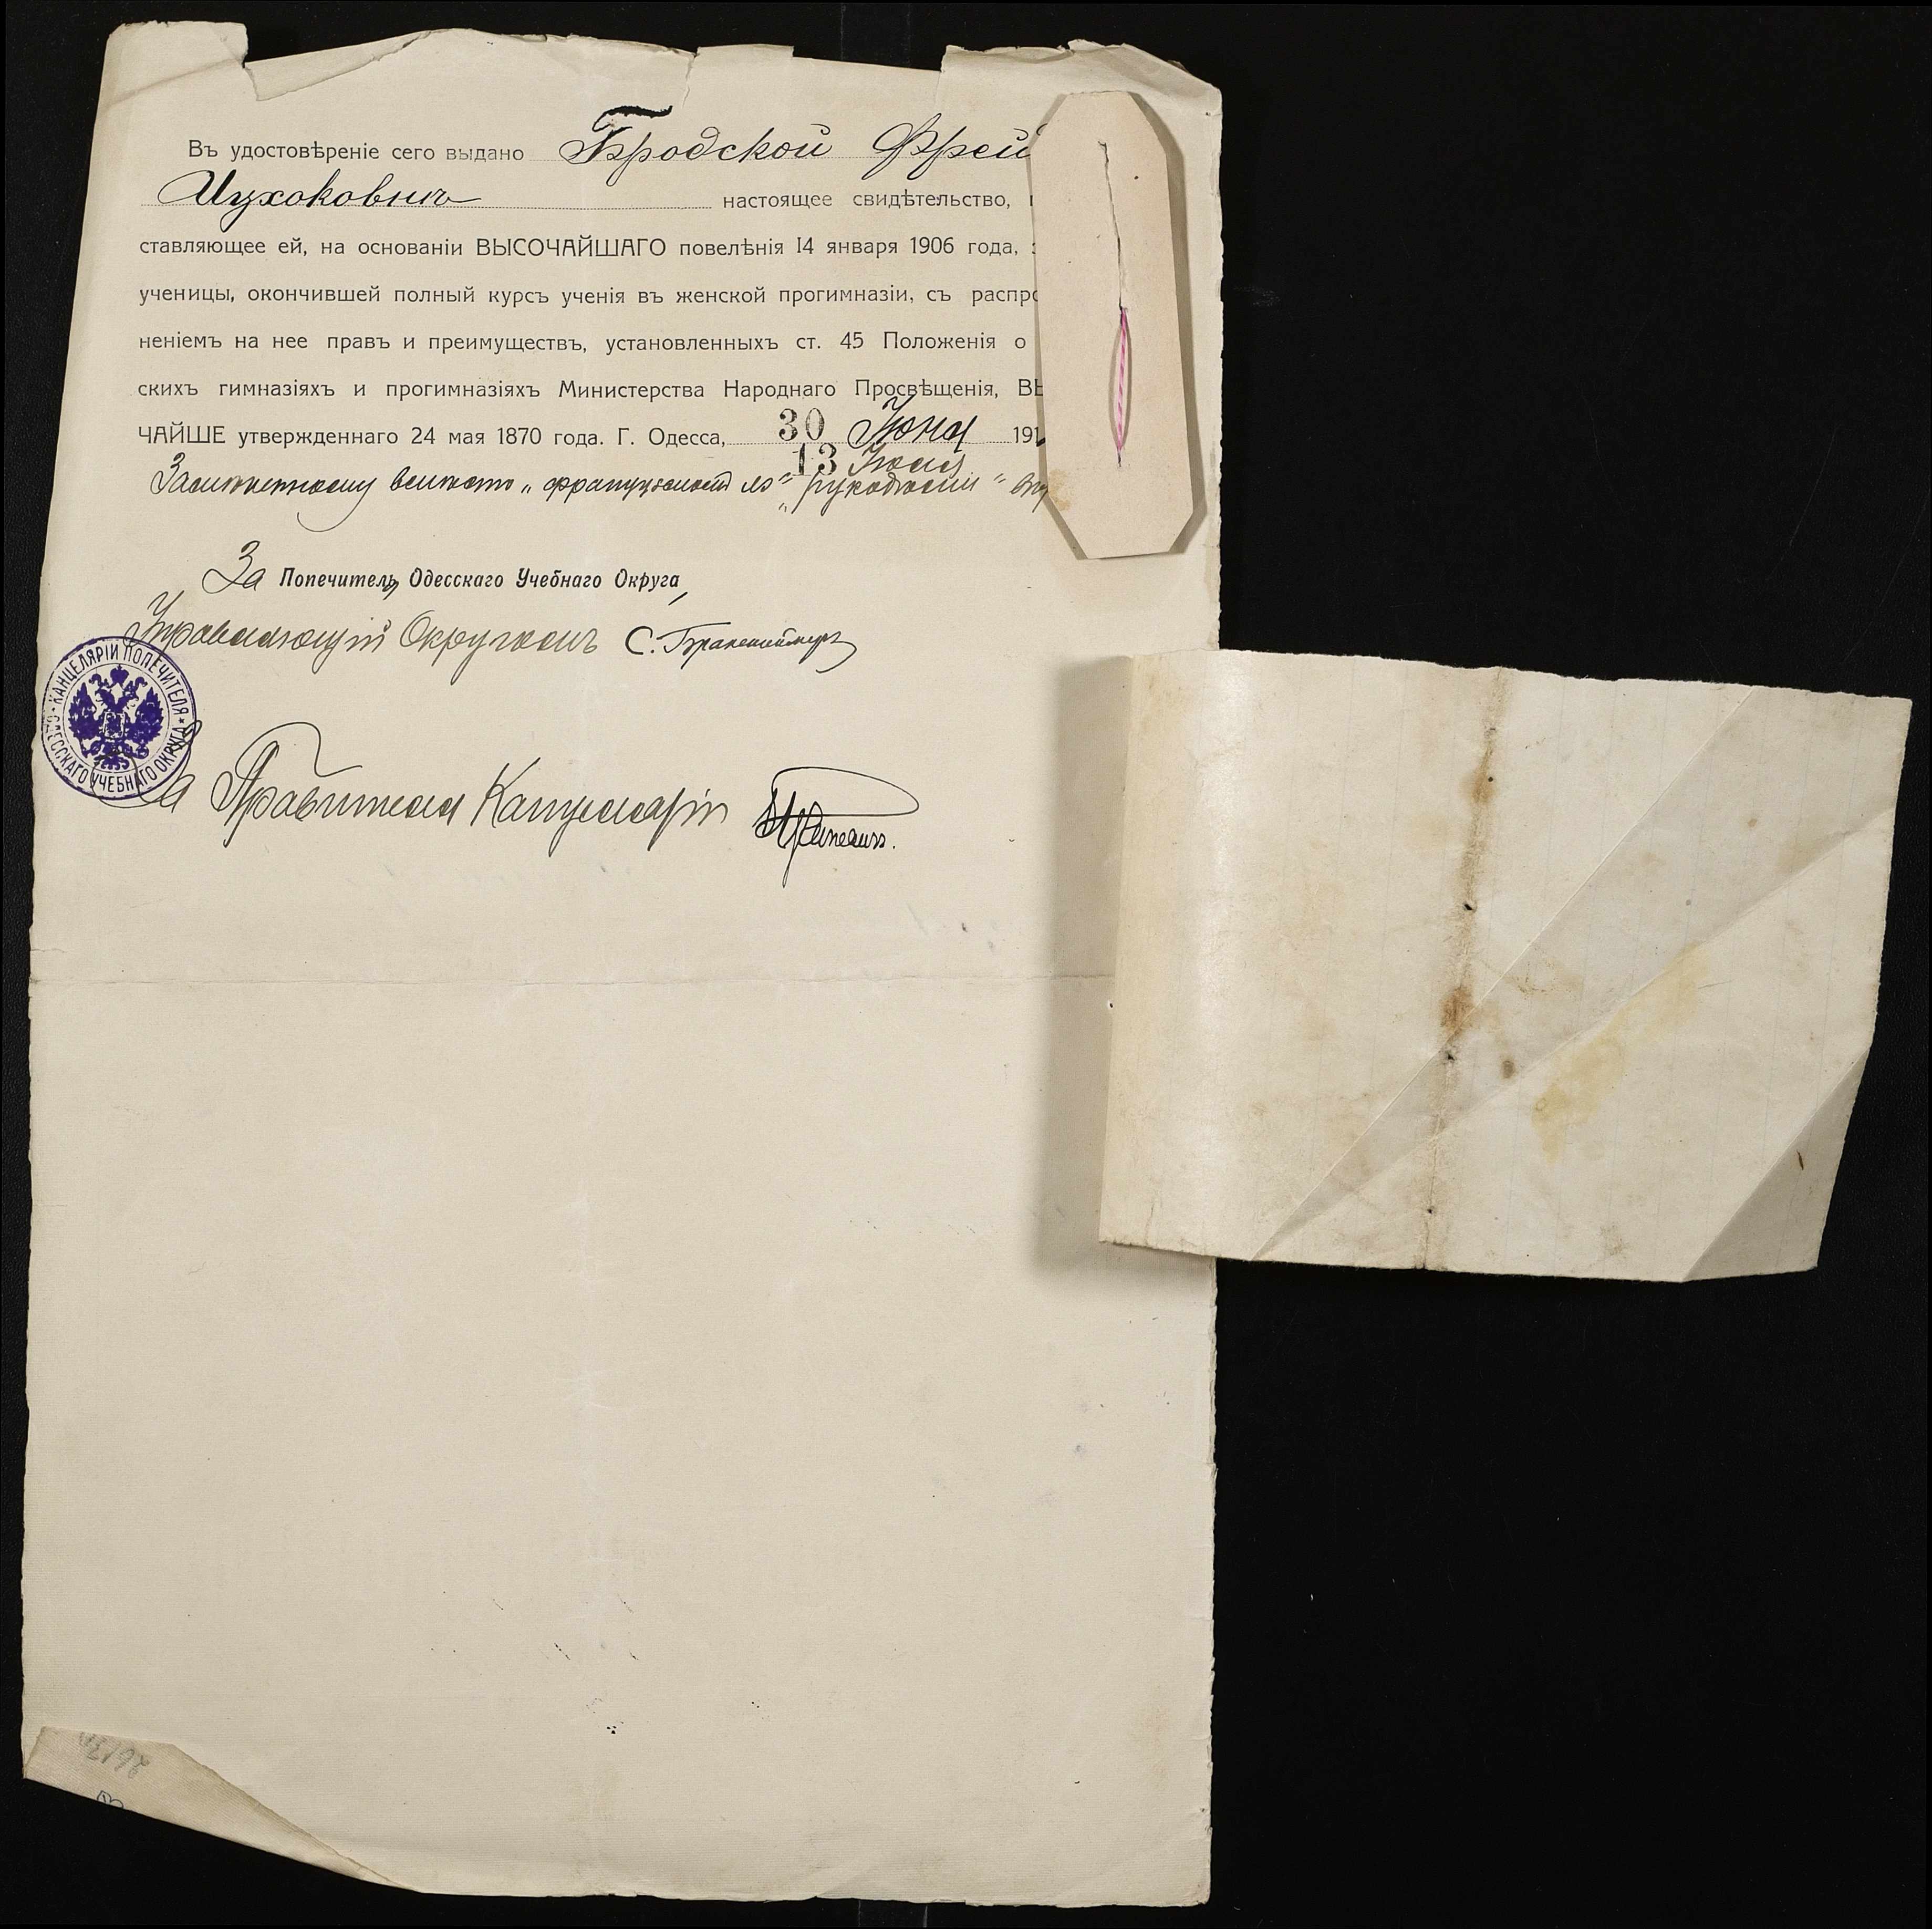 Въ удостовѣреніе сего выдано Бродской Фрей
Ицхоковнѣ настоящее свидѣтельство,
ставляющее ей, на основаніи ВЫСОЧАЙШАГО повелѣнія 14 января 1906 года,
ученицы, окончившей полный курсъ ученія въ женской прогимназіи, съ распро
неніемъ на нее правъ и преимуществъ, установленныхъ ст. 45 Положенія о
скихъ гимназіяхъ и прогимназіяхъ Министерства Народнаго Просвѣщенія, ВЫ
ЧАЙШЕ утвержденнаго 24 мая 1870 года. Г. Одесса, 30 Іюня 191
13 Іюля
"французскій" "рукодѣлии"
За Попечителя Одесскаго Учебнаго Округа,
Управляющій Округомъ С.
КАНЦЕЛЯРІИ ПОПЕЧИТЕЛЯ ОДЕССКАГО УЧЕБНАГО ОКРУГА
За Правителя Канцеляріи